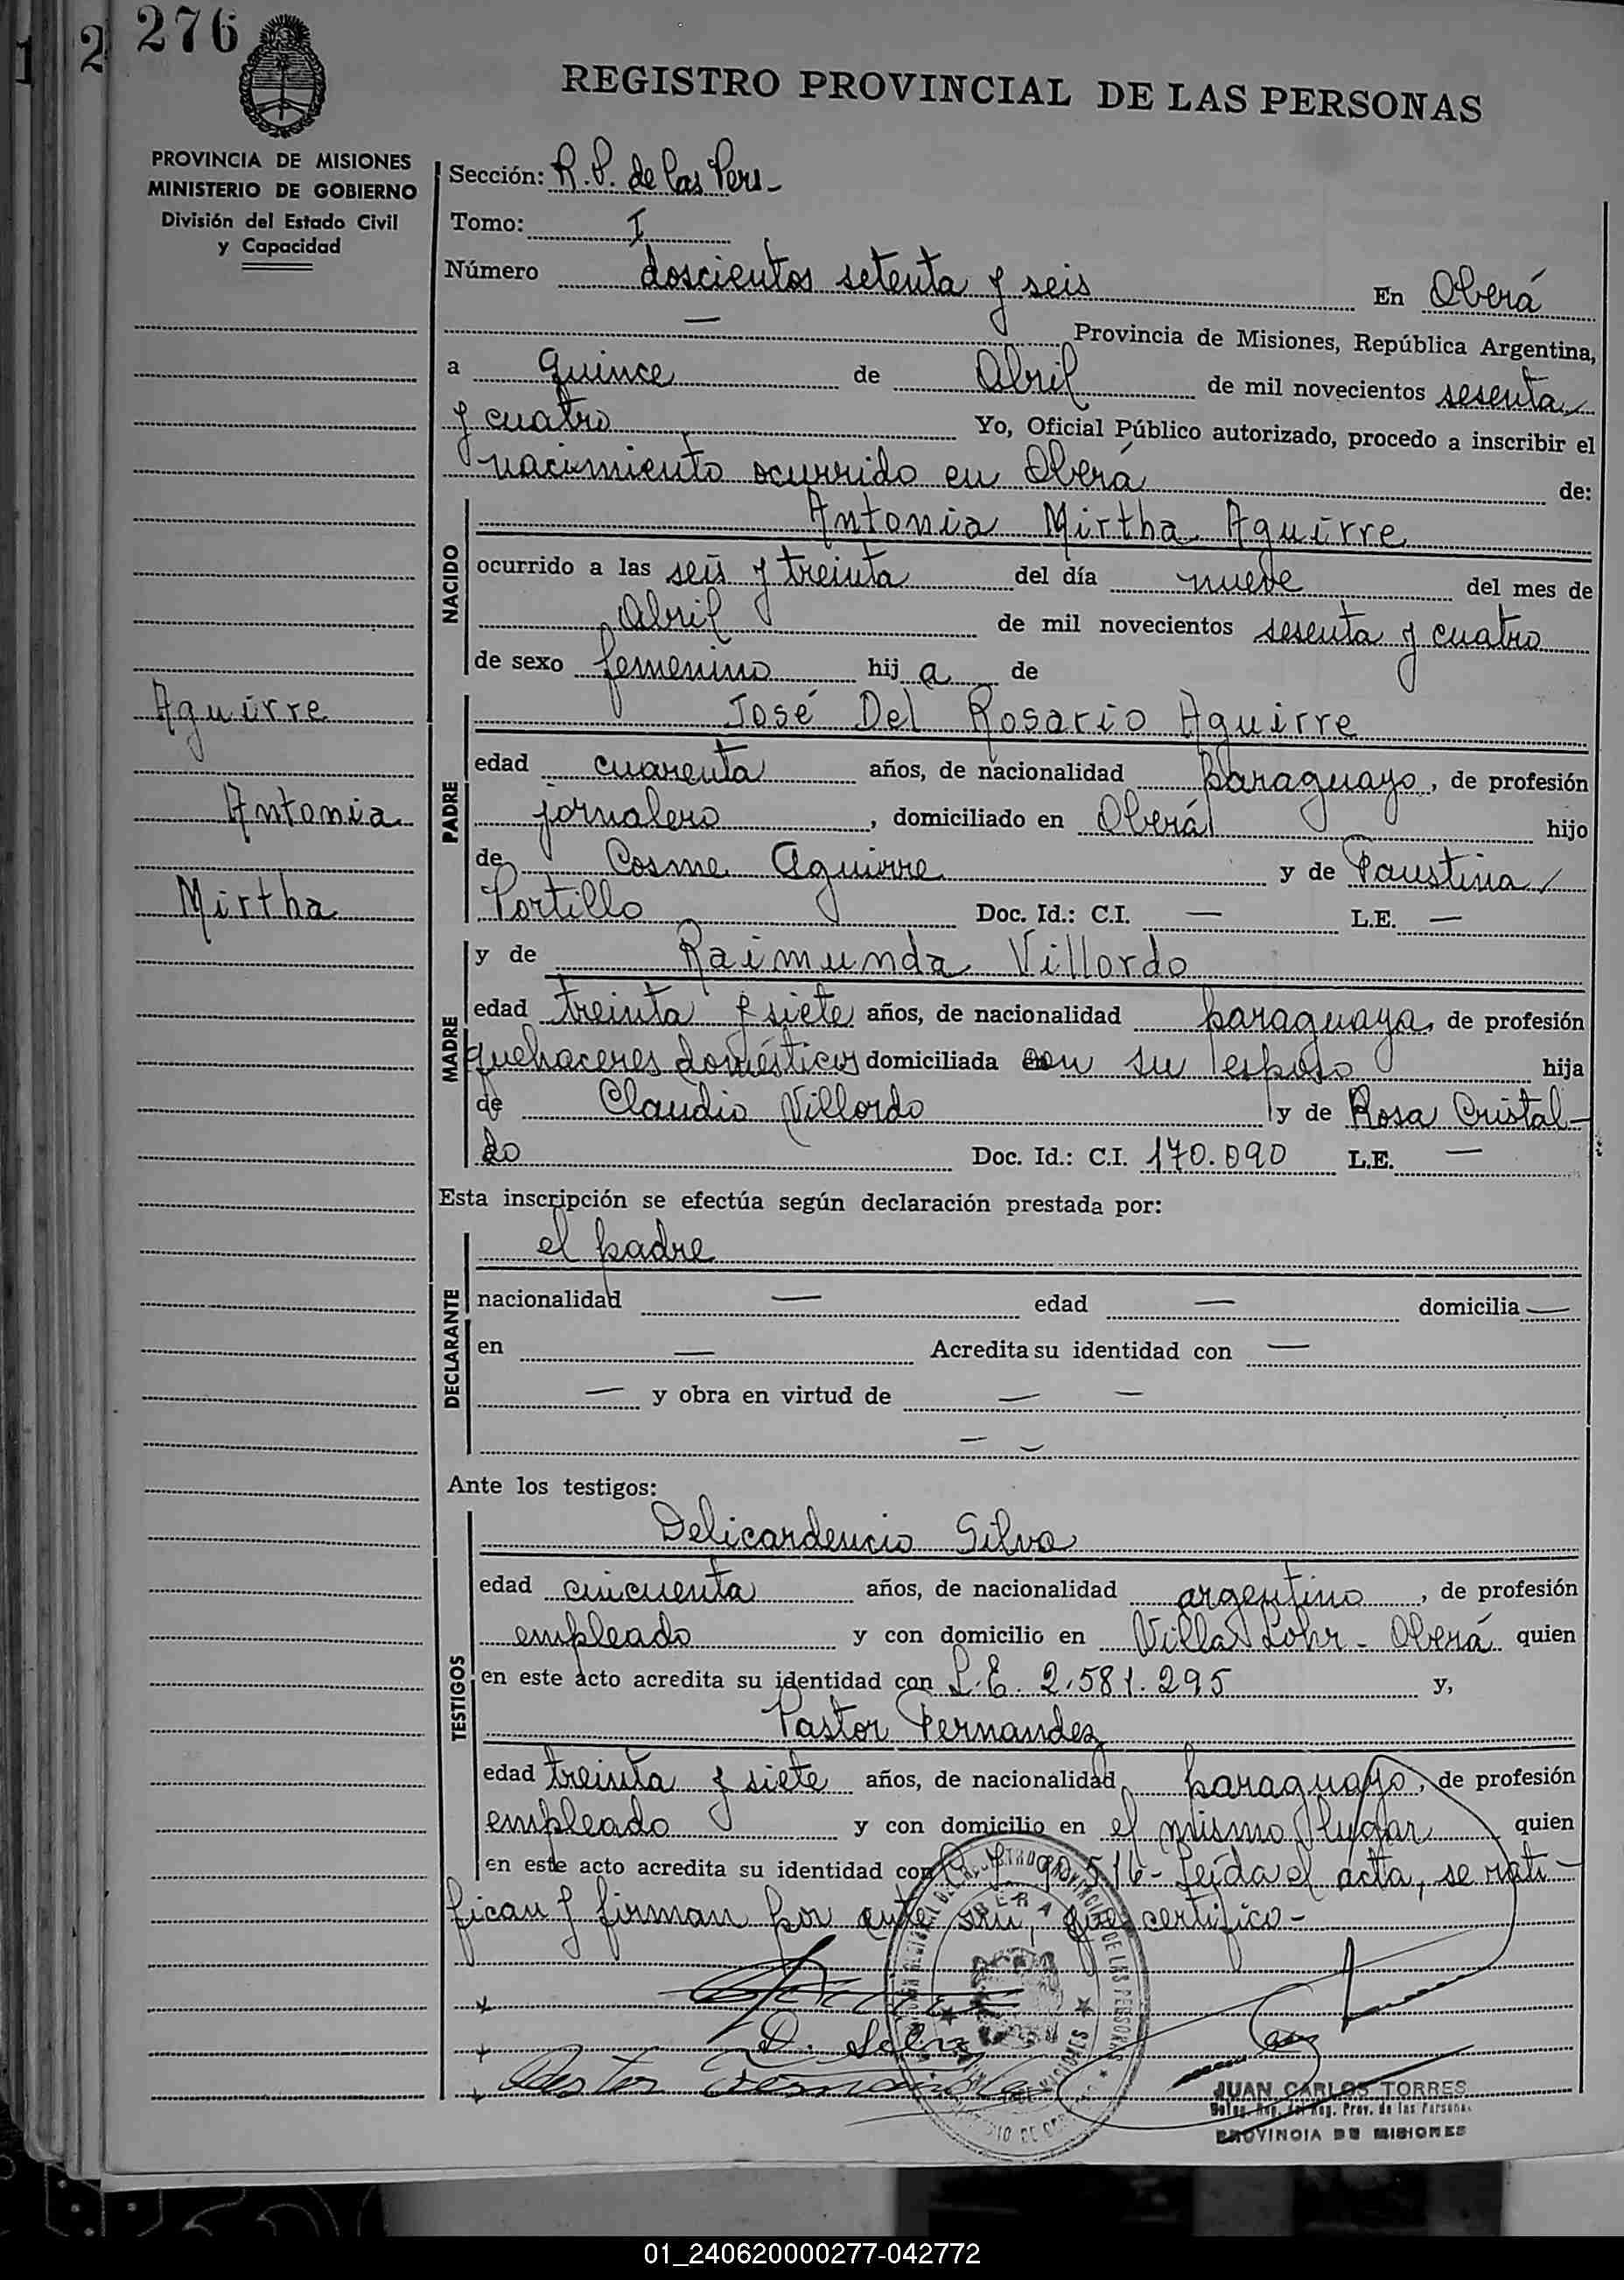 1 2 276
REGISTRO PROVINCIAL DE LAS PERSONAS
PROVINCIA DE MISIONES
MINISTERIO DE GOBIERNO
División del Estado Civil
y Capacidad
Aguirre
Antonia
Mirtha
Sección: R.P. de las Pers-
Tomo: I
Número doscientos setenta y seis En Oberá
— Provincia de Misiones, República Argentina,
a quince de Abril de mil novecientos sesenta
y cuatro Yo, Oficial Público autorizado, procedo a inscribir el
nacimiento ocurrido en Oberá de:
NACIDO
Antonia Mirtha Aguirre
ocurrido a las seis y treinta del día nueve del mes de
Abril de mil novecientos sesenta y cuatro
de sexo femenino hij a de
PADRE
José Del Rosario Aguirre
edad cuarenta años, de nacionalidad paraguayo, de profesión
jornalero, domiciliado en Oberá hijo
de Cosme Aguirre y de Faustina
Portillo Doc. Id.: C.I. — L.E. —
MADRE
y de Raimunda Villordo
edad treinta y siete años, de nacionalidad paraguaya, de profesión
quehaceres domésticos domiciliada con su esposo hija
de Claudio Villordo y de Rosa Cristal-
do Doc. Id.: C.I. 170.090 L.E. —
Esta inscripción se efectúa según declaración prestada por:
DECLARANTE
el padre
nacionalidad — edad — domicilia —
en — Acredita su identidad con —
— y obra en virtud de — —
— —
Ante los testigos:
TESTIGOS
Delicardencio Silva
edad cincuenta años, de nacionalidad argentino, de profesión
empleado y con domicilio en Villa Lohr - Oberá quien
en este acto acredita su identidad con L.E. 2.581.295 y,
Pastor Fernandez
edad treinta y siete años, de nacionalidad paraguayo, de profesión
empleado y con domicilio en el mismo lugar quien
en este acto acredita su identidad con 516- Leída el acta, se rati-
fican y firman por ante mi, que certifico-
D. Silva
Pastor Fernandez
OBERA
MISIONES
JUAN CARLOS TORRES
Deleg. Reg. del Reg. Prov. de las Personas
PROVINCIA DE MISIONES
01_240620000277-042772